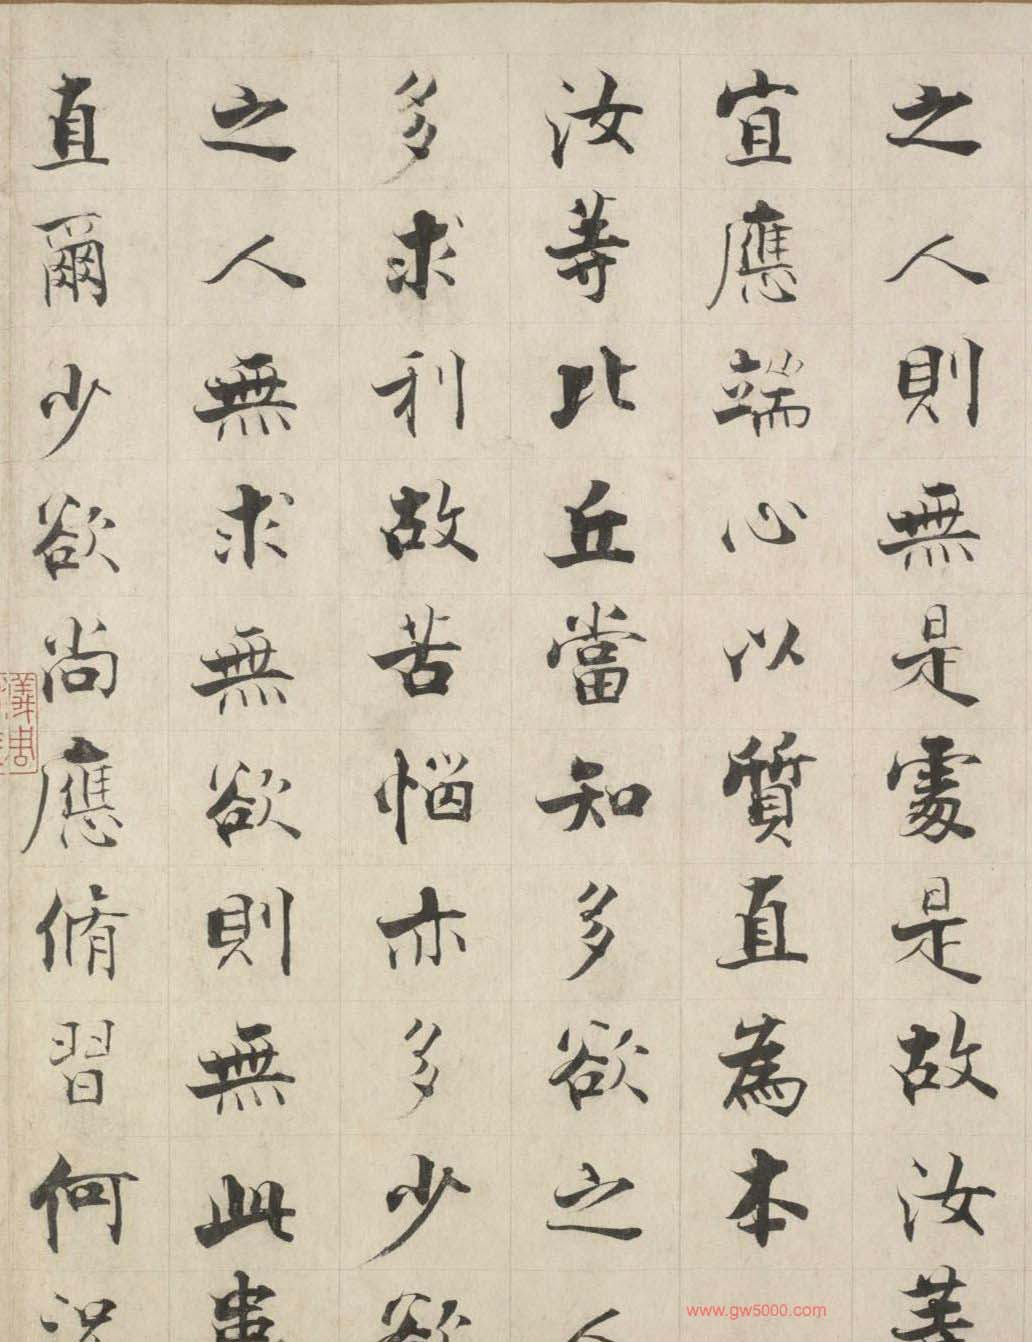 之人則無是處是故汝等
宜應端心以質直為本
汝等比丘當知多欲之人
多求利故苦惱亦多少欲
之人無求無欲則無此患
直爾少欲尚應脩習何況
www.gw5000.com